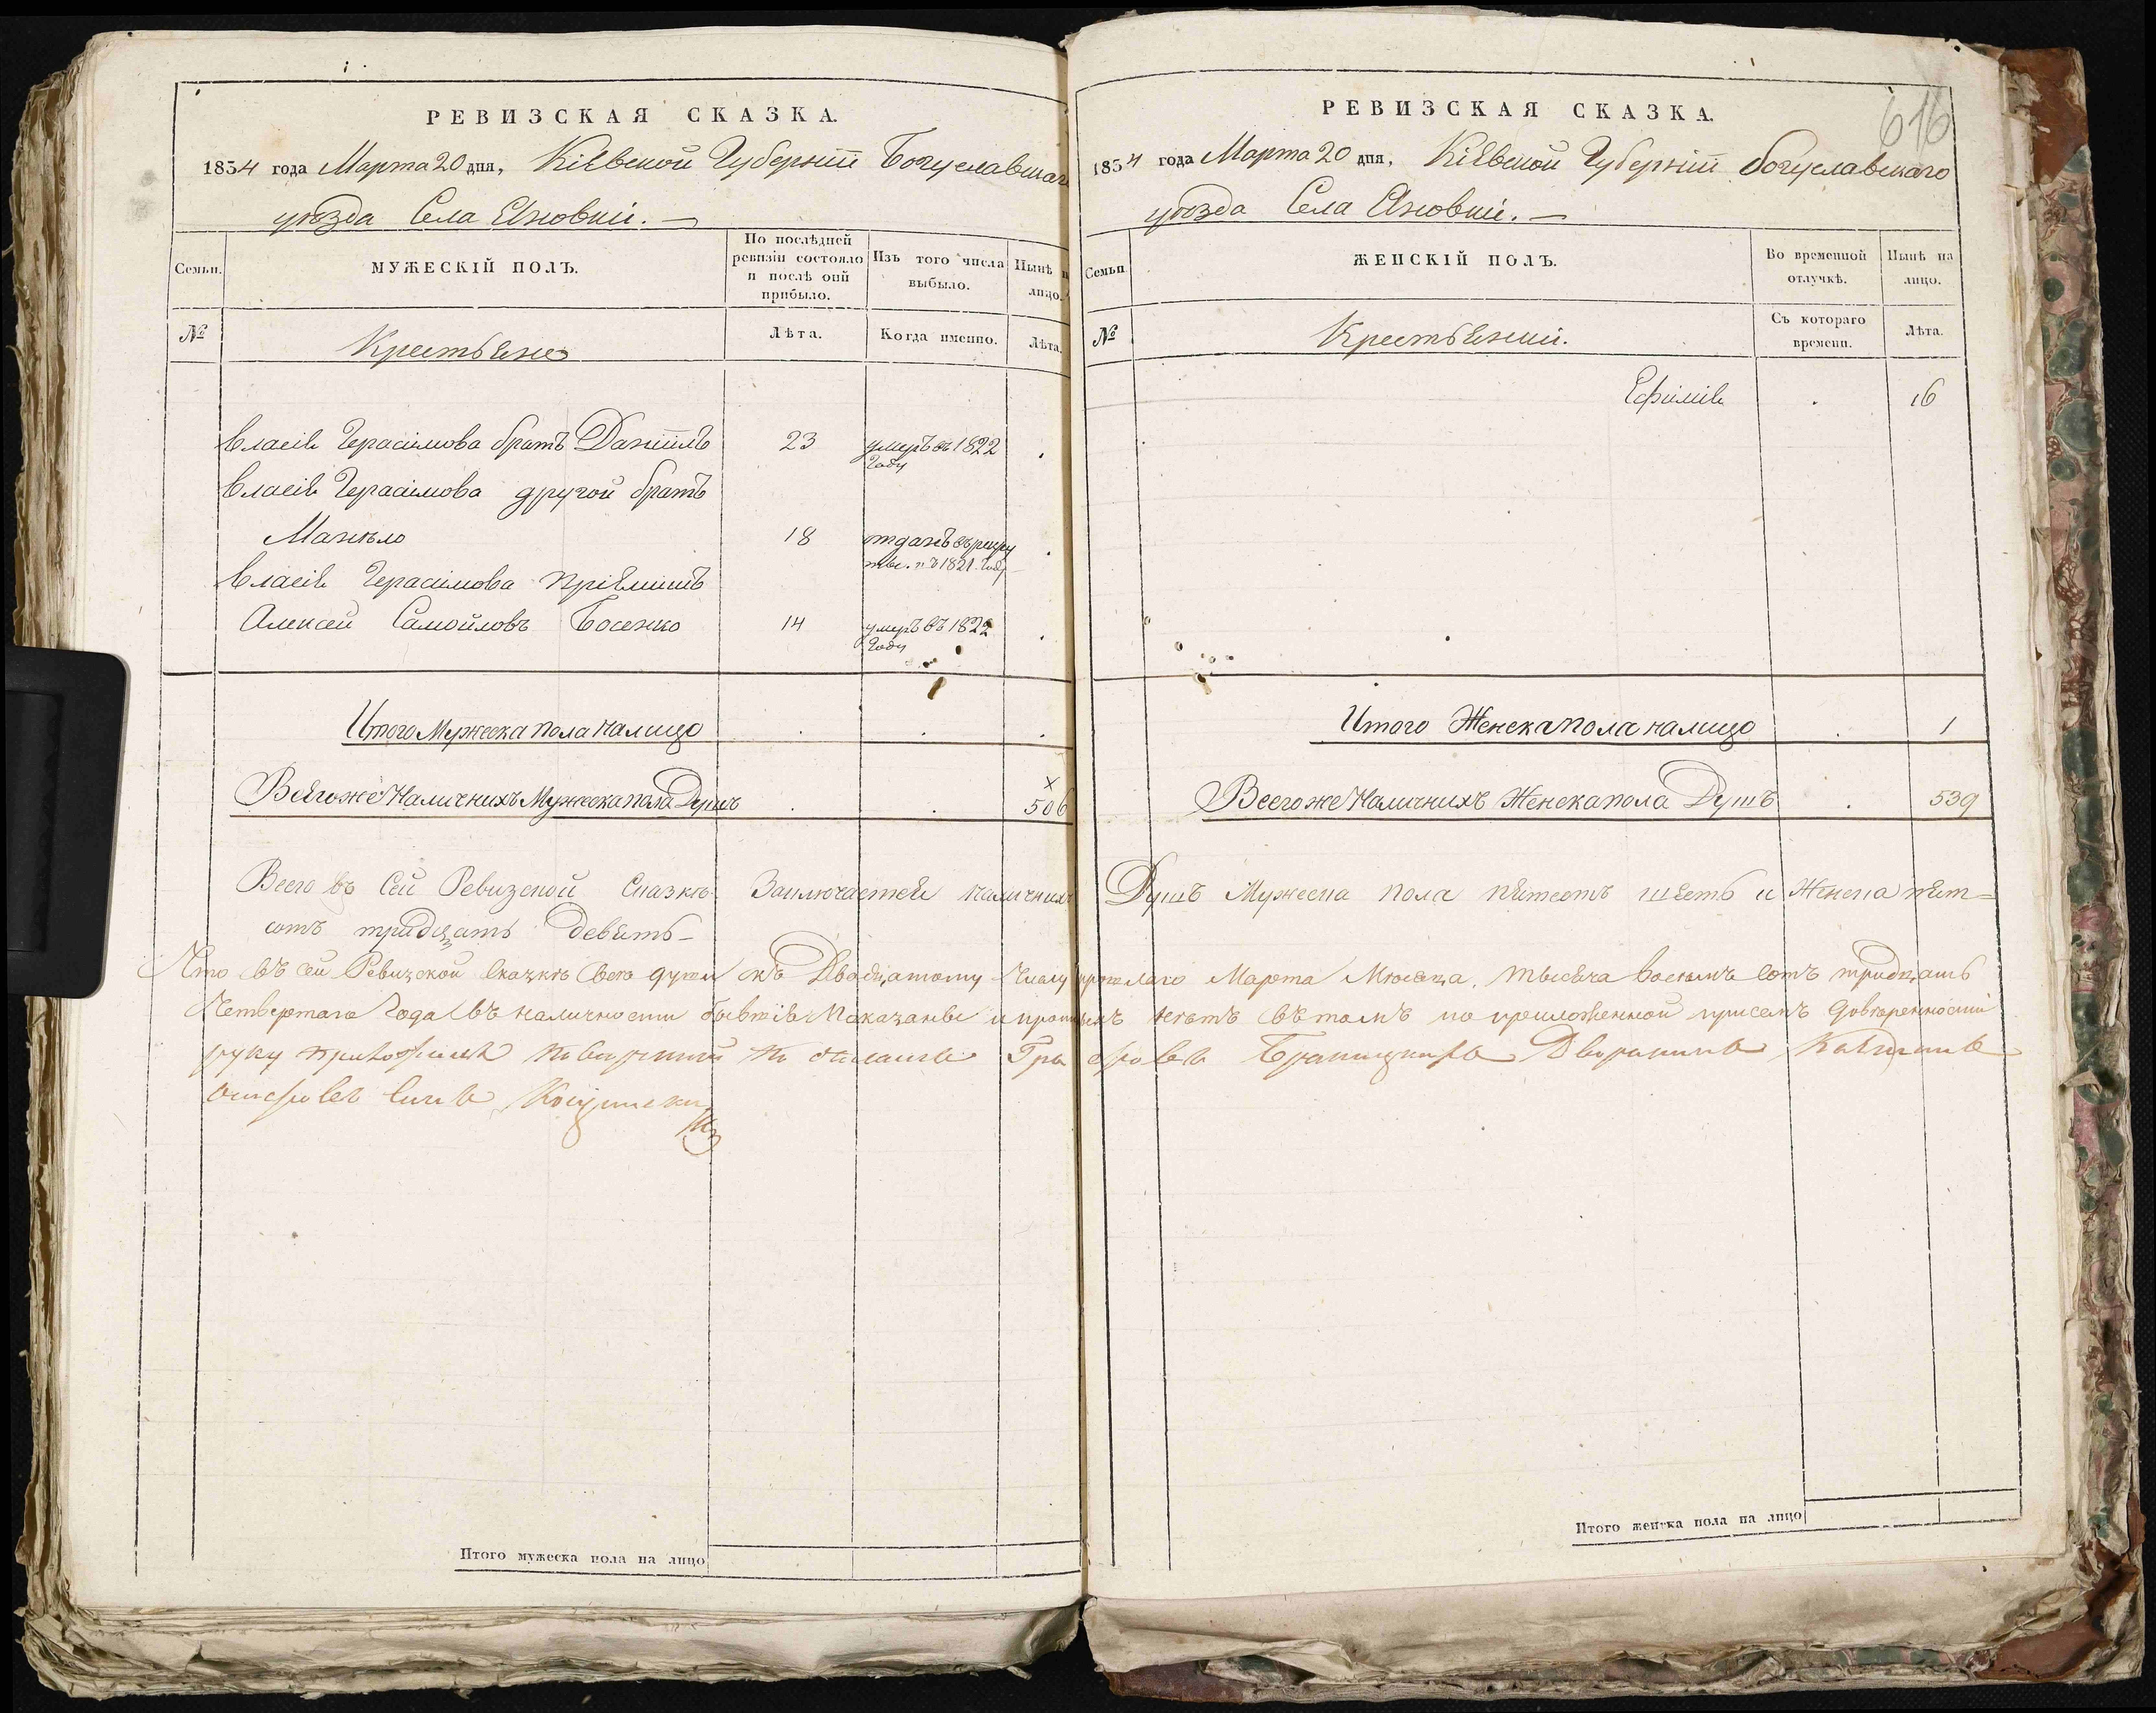 РЕВИЗСКАЯ СКАЗКА.
1834 года Марта 20 дня, Кіевской Губерніи Богуславскаго
уѣзда Села Яновки. —
Семьи.
МУЖЕСКІЙ ПОЛЪ.
По послѣдней ревизіи состояло и послѣ оий прибыло.
Изъ того числа выбыло.
Нынѣ на лицо.
№
Крестьяне
Лѣта.
Когда именно.
Лѣта.
Власія Герасимова братъ Даніилъ 23 умеръ въ 1822 Году .
Власія Герасимова другой братъ
Манѣло 18 отданъ въ рекру тви. въ 1821. Году .
Власія Герасимова пріемишъ
Алексей Самойловъ Босенко 14 умеръ въ 1822 Году .
Итого Мужеска пола налицо . . .
Всягоже Наличнихъ Мужеска пола Душъ . . х 506
РЕВИЗСКАЯ СКАЗКА.
616
1834 года Марта 20 дня, Кіевской Губерніи богуславскаго
уѣзда Села Яновки. —
Семьи
ЖЕНСКІЙ ПОЛЪ.
Во временной отлучкѣ.
Нынѣ на лицо.
№
Крестьянки.
Съ котораго времени.
Лѣта.
Ефимія . 16
Итого Женска пола налицо . 1
Всего же Наличнихъ Женска пола Душъ . 539
Всего въ Сей Ревизской Сказкѣ Заключается наличнихъ Душъ Мужеска пола пятсотъ шесть и Женска пят=
сотъ тридцать девять —
Что въ сей Ревизской Сказкѣ всѣ души къ Двадцатому Числу прошлаго Марта Мюсяца, тысяча восемь сотъ тридцать
Четвертаго Года въ наличности бывшіе показаны и нѣтъ въ томъ по приложенной присемъ довѣренности
руку приложилъ Браницкихъ Дворянинъ
Итого мужеска пола на лицо
Итого женска пола на лицо